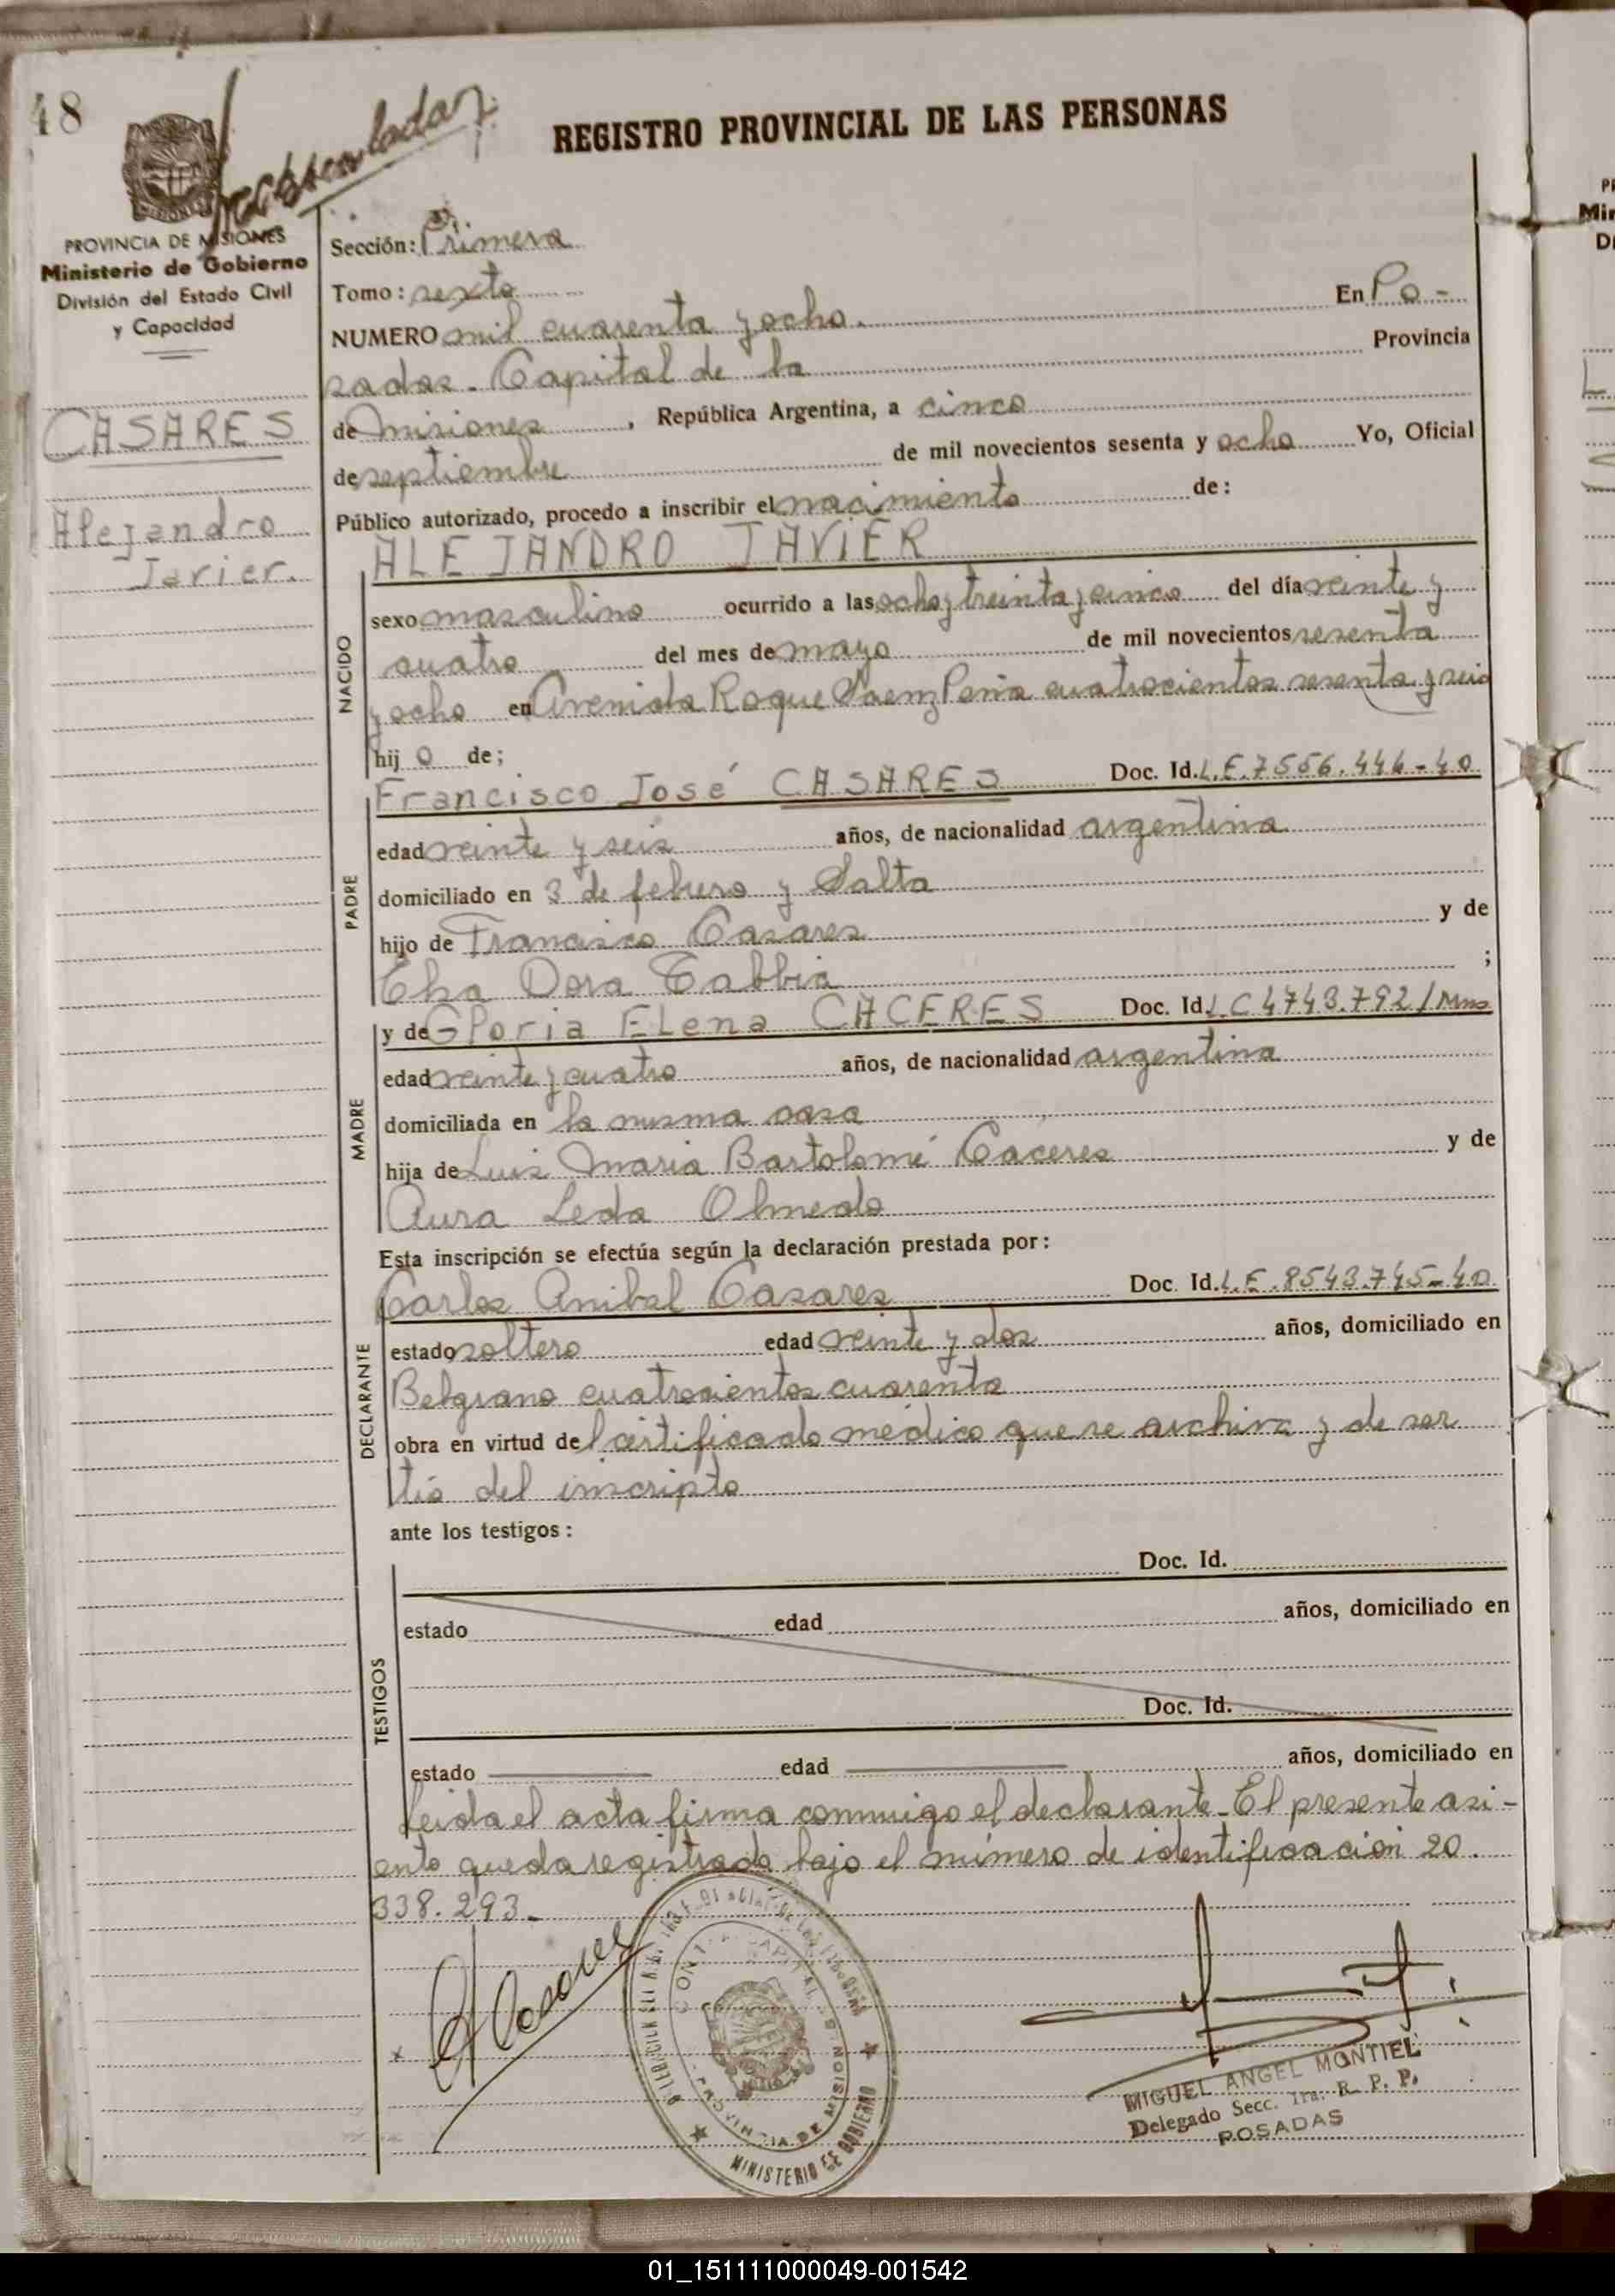 48
REGISTRO PROVINCIAL DE LAS PERSONAS
PROVINCIA DE MISIONES
Ministerio de Gobierno
División del Estado Civil
y Capacidad
CASARES
Alejandro
Javier.
Sección: Primera
Tomo: sexto
En Po-
NUMERO mil cuarenta y ocho.
Provincia
sadas. Capital de la
de Misiones, República Argentina, a cinco
de septiembre de mil novecientos sesenta y ocho Yo, Oficial
Público autorizado, procedo a inscribir el nacimiento de:
ALEJANDRO JAVIER
NACIDO
sexo masculino ocurrido a las ocho y treinta y cinco del día veinte y
cuatro del mes de mayo de mil novecientos sesenta
y ocho en Avenida Roque Saenz Peña cuatrocientos sesenta y seis
hijo de;
Francisco José CASARES Doc. Id. L.E.7556.446-40
PADRE
edad veinte y seis años, de nacionalidad argentina
domiciliado en 3 de febrero y Salta
hijo de Francisco Casares y de
Elsa Dora Tabbia ;
y de Gloria Elena CACERES Doc. Id. L C 4743.792/Mns
MADRE
edad veinte y cuatro años, de nacionalidad argentina
domiciliada en la misma casa
hija de Luis Maria Bartolomé Cáceres y de
Aura Leda Olmedo
Esta inscripción se efectúa según la declaración prestada por:
Carlos Anibal Casares Doc. Id. L.E.8543.745-40
DECLARANTE
estado soltero edad veinte y dos años, domiciliado en
Belgrano cuatrocientos cuarenta
obra en virtud del certificado médico que se archiva y de ser
tío del inscripto
ante los testigos:
TESTIGOS
Doc. Id.
estado edad años, domiciliado en
Doc. Id.
estado edad años, domiciliado en
Leida el acta firma conmigo el declarante. El presente asi-
ento queda registrado bajo el número de identificación 20.
338.293.
PROVINCIA DE MISIONES
MINISTERIO DE GOBIERNO
MIGUEL ANGEL MONTIEL
Delegado Secc. 1ra. R. P. P.
POSADAS
01_151111000049-001542